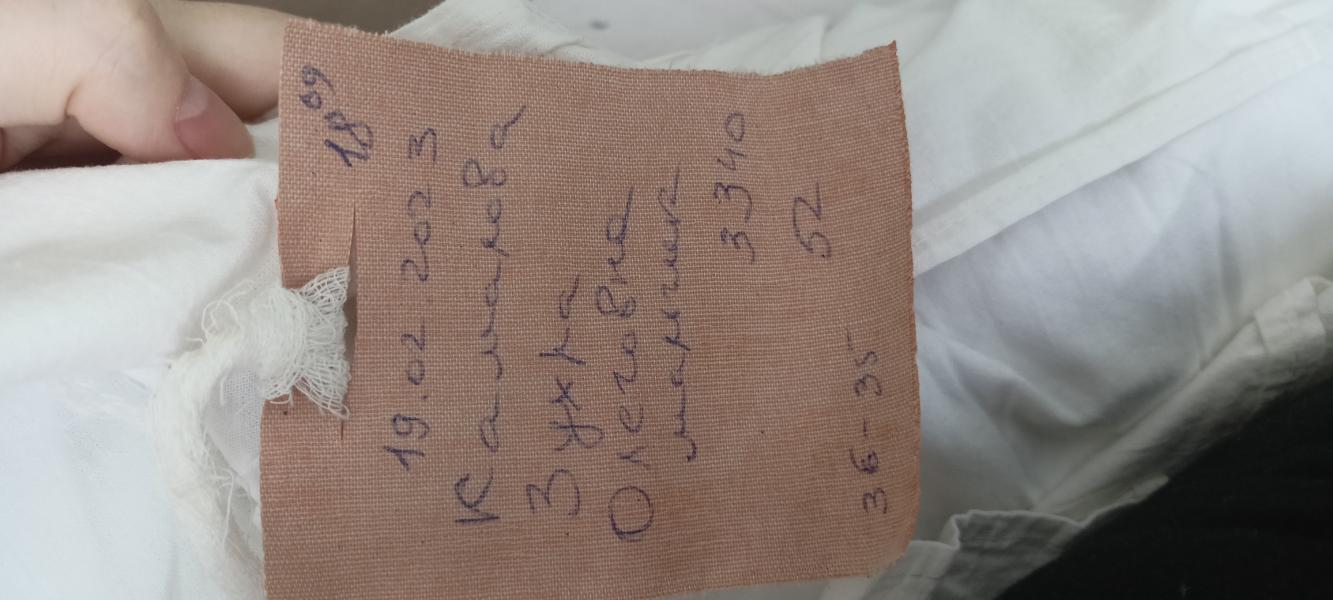 18 09
19.02.2023
Камалова
Зухра
Олеговна
мальчик
3340
52
36-35